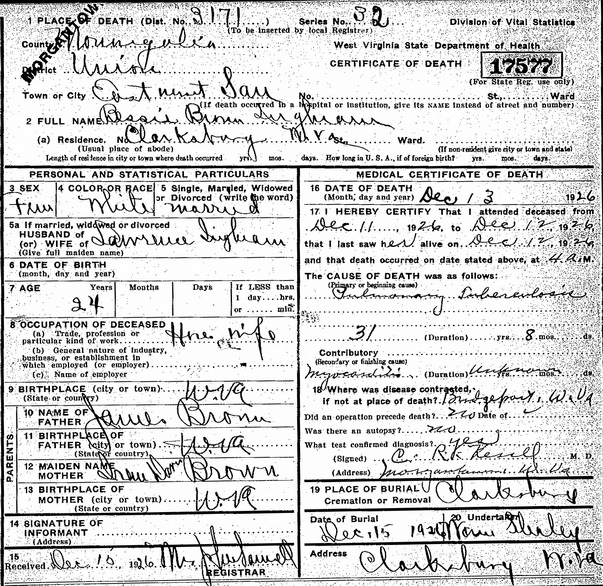 MORGANTOWN
1 PLACE OF DEATH (Dist. No. 3171) Series No. 32 Division of Vital Statistics
(To be inserted by local Registrar)
County Monongalia West Virginia State Department of Health
District Union CERTIFICATE OF DEATH 17577
(For State Reg. use only)
Town or City East mont San No. St., Ward
(If death occurred in a hospital or institution, give its NAME instead of street and number)
2 FULL NAME Bessie Brown Ingham
(a) Residence. No. Clarksburg W Va St. Ward.
(Usual place of abode) (If non-resident give city or town and state)
Length of residence in city or town where death occurred yrs. mos. days. How long in U. S. A., if of foreign birth? yrs. mos. days.
PERSONAL AND STATISTICAL PARTICULARS
3 SEX 4 COLOR OR RACE 5 Single, Married, Widowed
or Divorced (write the word)
Fem White married
5a If married, widowed or divorced
HUSBAND OF
(or) WIFE OF Lawrence Ingham
(Give full maiden name)
6 DATE OF BIRTH
(month, day and year)
7 AGE Years Months Days If LESS than
1 day....hrs.
or......min.
24
8 OCCUPATION OF DECEASED
(a) Trade, profession or
particular kind of work House wife
(b) General nature of industry,
business, or establishment in
which employed (or employer)
(c) Name of employer
9 BIRTHPLACE (city or town) W.Va
(State or country)
PARENTS
10 NAME OF
FATHER James Brown
11 BIRTHPLACE OF
FATHER (city or town) W Va
(State or country)
12 MAIDEN NAME OF
MOTHER Brown
13 BIRTHPLACE OF
MOTHER (city or town) W.Va
(State or country)
14 SIGNATURE OF
INFORMANT
(Address)
15
Received Dec 15 1926
REGISTRAR
MEDICAL CERTIFICATE OF DEATH
16 DATE OF DEATH
(Month, day and year) Dec 13 1926
17 I HEREBY CERTIFY That I attended deceased from
Dec 11, 1926, to Dec 12, 1926,
that I last saw her alive on Dec 12, 1926,
and that death occurred on date stated above, at 4 a.M.
The CAUSE OF DEATH was as follows:
(Primary or beginning cause)
Pulmonary Tuberculosis
31 (Duration) yrs. 8 mos. ds.
Contributory
(Secondary or finishing cause)
Myocarditis (Duration) Unknown mos. ds.
18 Where was disease contracted,
if not at place of death? Bridgeport, W.Va
Did an operation precede death? no Date of
Was there an autopsy? no
What test confirmed diagnosis? yes
(Signed) M. D.
(Address) Morgantown W. Va
19 PLACE OF BURIAL
Cremation or Removal Clarksburg
Date of Burial 20 Undertaker
Dec. 15 1926
Address Clarksburg W.Va